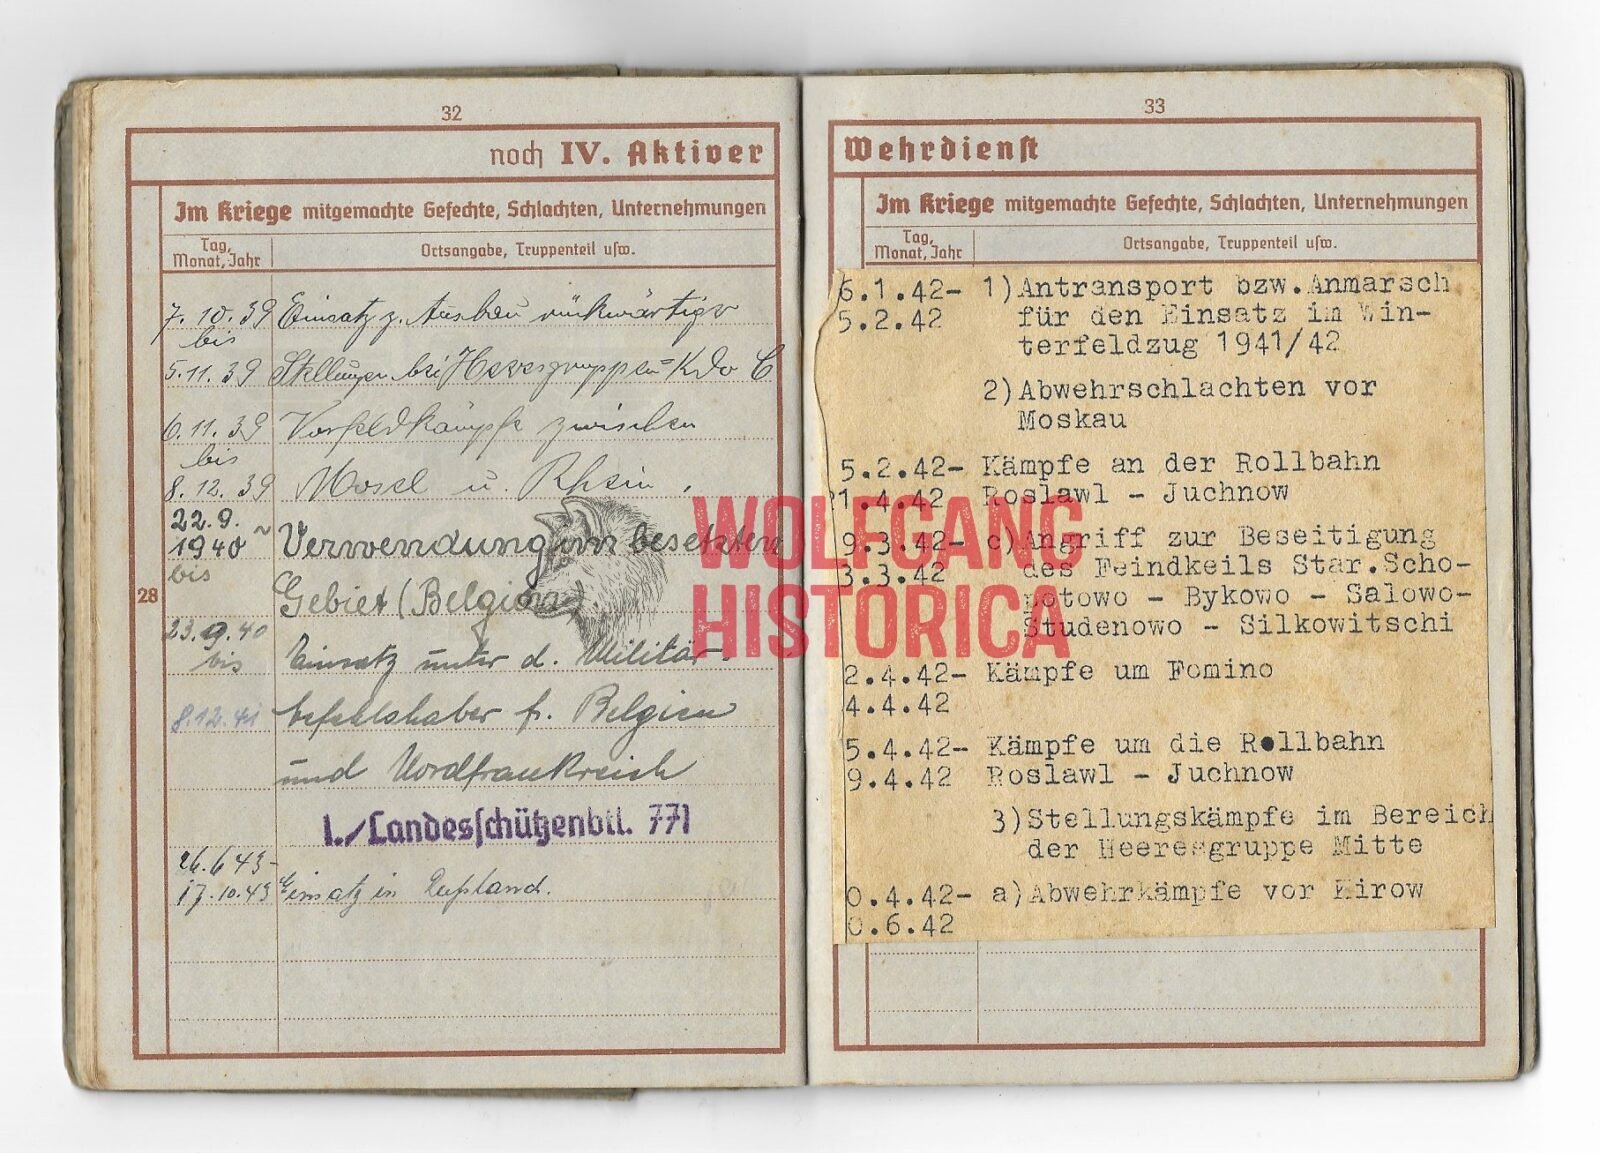 32
noch IV. Aktiver
Im Kriege mitgemachte Gefechte, Schlachten, Unternehmungen
Tag, Monat, Jahr
Ortsangabe, Truppenteil usw.
28
7. 10. 39 Einsatz z. Ausbau rückwärtiger
bis
5. 11. 39 Stellungen bei Heeresgruppen=Kdo C
6. 11. 39 Vorfeldkämpfe zwischen
bis
8. 12. 39 Mosel u. Rhein.
22. 9.
1940 ~ Verwendung im besetzten
bis
Gebiet (Belgien)
23. 9. 40
bis Einsatz unter d. Militär-
8. 12. 41 befehlshaber f. Belgien
und Nordfrankreich
1./Landesschützenbtl. 771
26.6 43-
17.10.43 Einsatz in Rußland.
33
Wehrdienst
Im Kriege mitgemachte Gefechte, Schlachten, Unternehmungen
Tag, Monat, Jahr
Ortsangabe, Truppenteil usw.
6.1.42- 1)Antransport bzw.Anmarsch
5.2.42 für den Einsatz im Win-
terfeldzug 1941/42
2)Abwehrschlachten vor
Moskau
5.2.42- Kämpfe an der Rollbahn
1.4.42 Roslawl - Juchnow
9.3.42- c)Angriff zur Beseitigung
3.3.42 des Feindkeils Star.Scho-
potowo - Bykowo - Salowo-
Studenowo - Silkowitschi
2.4.42- Kämpfe um Fomino
4.4.42
5.4.42- Kämpfe um die Rollbahn
9.4.42 Roslawl - Juchnow
3)Stellungskämpfe im Bereich
der Heeresgruppe Mitte
0.4.42- a)Abwehrkämpfe vor Kirow
0.6.42
WOLFGANG
HISTORICA